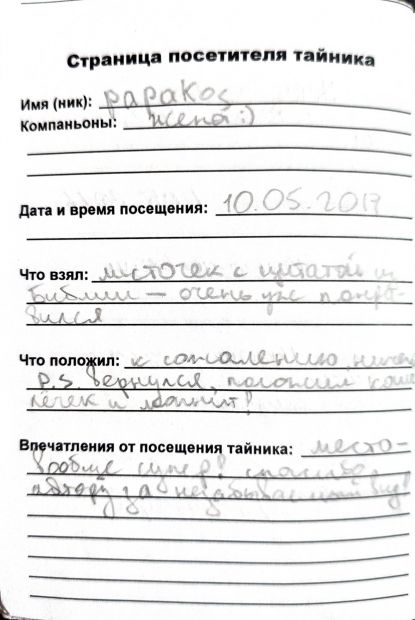 Страница посетителя тайника
Имя (ник): papakos
Компаньоны: жена :)
Дата и время посещения: 10.05.2017
Что взял: листочек с цитатой из
Библии — очень уж понра-
вился
Что положил: к сожалению, ничего
P.S вернулся, положил
и магнит!
Впечатления от посещения тайника: место-
вообще супер! спасибо
автору за незабываемый вид!